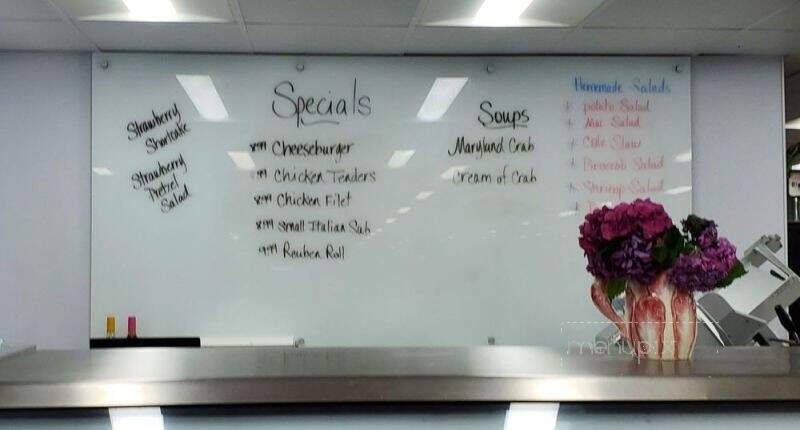 Strawberry
Shortcake
Strawberry
Pretzel
Salad
Specials
8.99 Cheeseburger
Chicken Tenders
8.99 Chicken Filet
8.99 Small Italian Sub
9.99 Reuben Roll
Soups
Maryland Crab
Cream of Crab
Homemade Salads
* potato Salad
* Mac Salad
* Cole Slaw
* Broccoli Salad
* Shrimp Salad
menupix